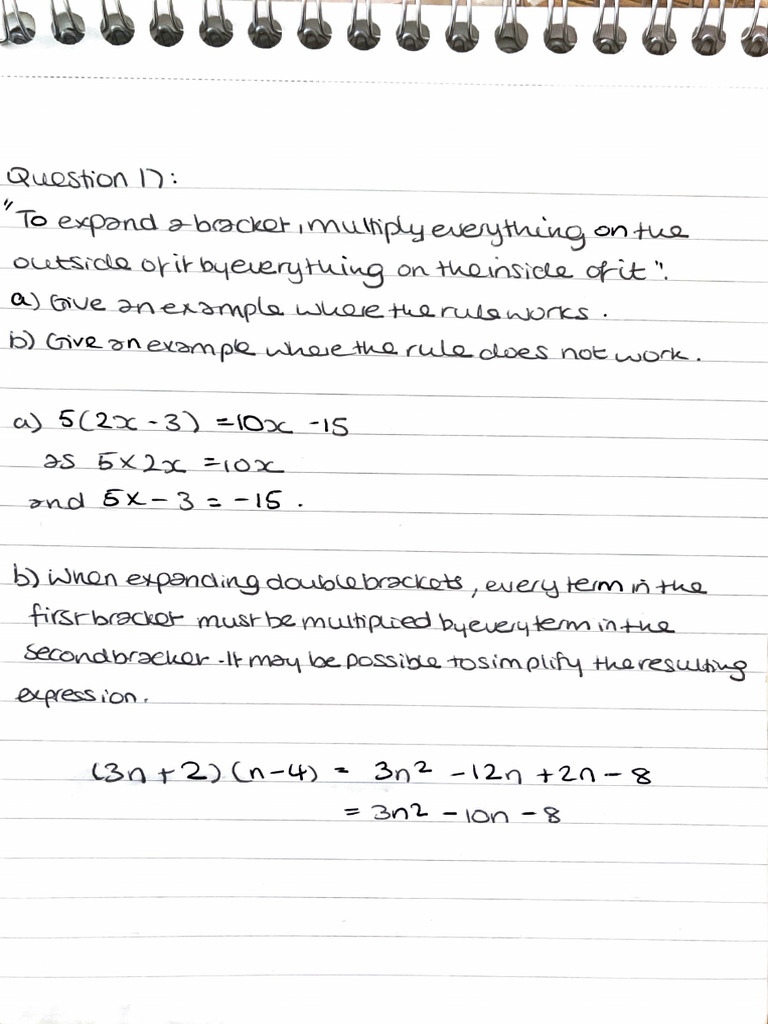 Question 17:
"To expand a bracket, multiply everything on the
outside of it by everything on the inside of it".
a) Give an example where the rule works.
b) Give an example where the rule does not work.
a) 5(2x - 3) = 10x - 15
as 5 × 2x = 10x
and 5 × - 3 = - 15.
b) When expanding double brackets, every term in the
first bracket must be multiplied by every term in the
second bracket. It may be possible to simplify the resulting
expression.
(3n + 2) (n - 4) = 3n² - 12n + 2n - 8
= 3n² - 10n - 8